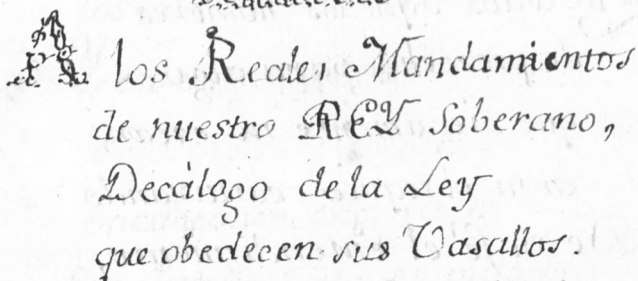 A los Reales Mandamientos
de nuestro REY Soberano,
Decàlogo de la Ley
que obedecen sus Vasallos.